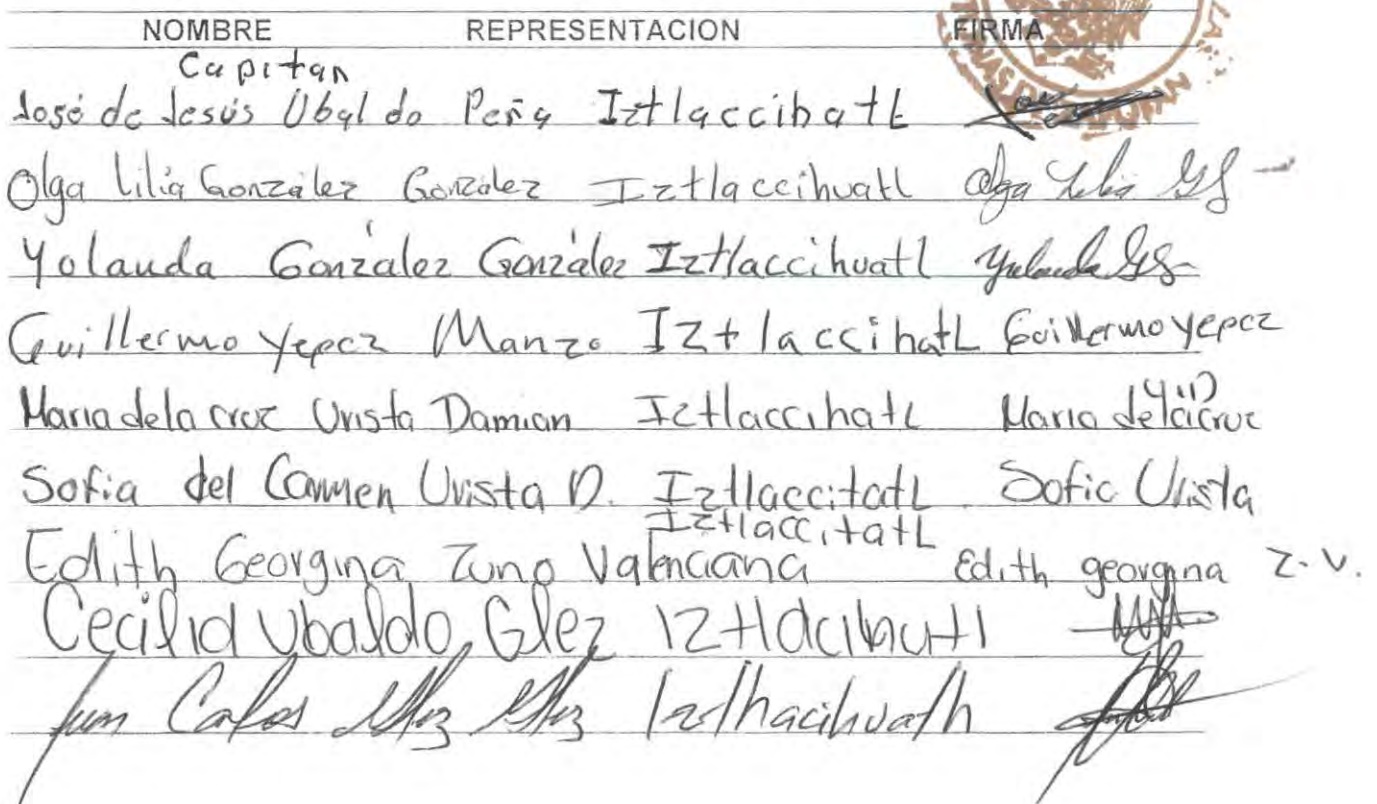 NOMBRE REPRESENTACION FIRMA
Capitan
José de Jesús Ubaldo Peña Iztlaccihatl
Olga Lilia González González Iztlaccihuatl Olga Lilia GG
Yolanda González González Iztlaccihuatl Yolanda GG
Guillermo Yepez Manzo Iztlaccihatl Guillermo Yepez
Maria de la cruz Urista Damian Iztlaccihatl Maria de la cruz
Sofia del Carmen Urista D. Iztlaccitatl Sofia Urista
Iztlaccitatl
Edith Georgina Zuno Valenciana Edith georgina Z.V.
Cecilia Ubaldo Glez
Juan Carlos Glez Glez Izthacihuath